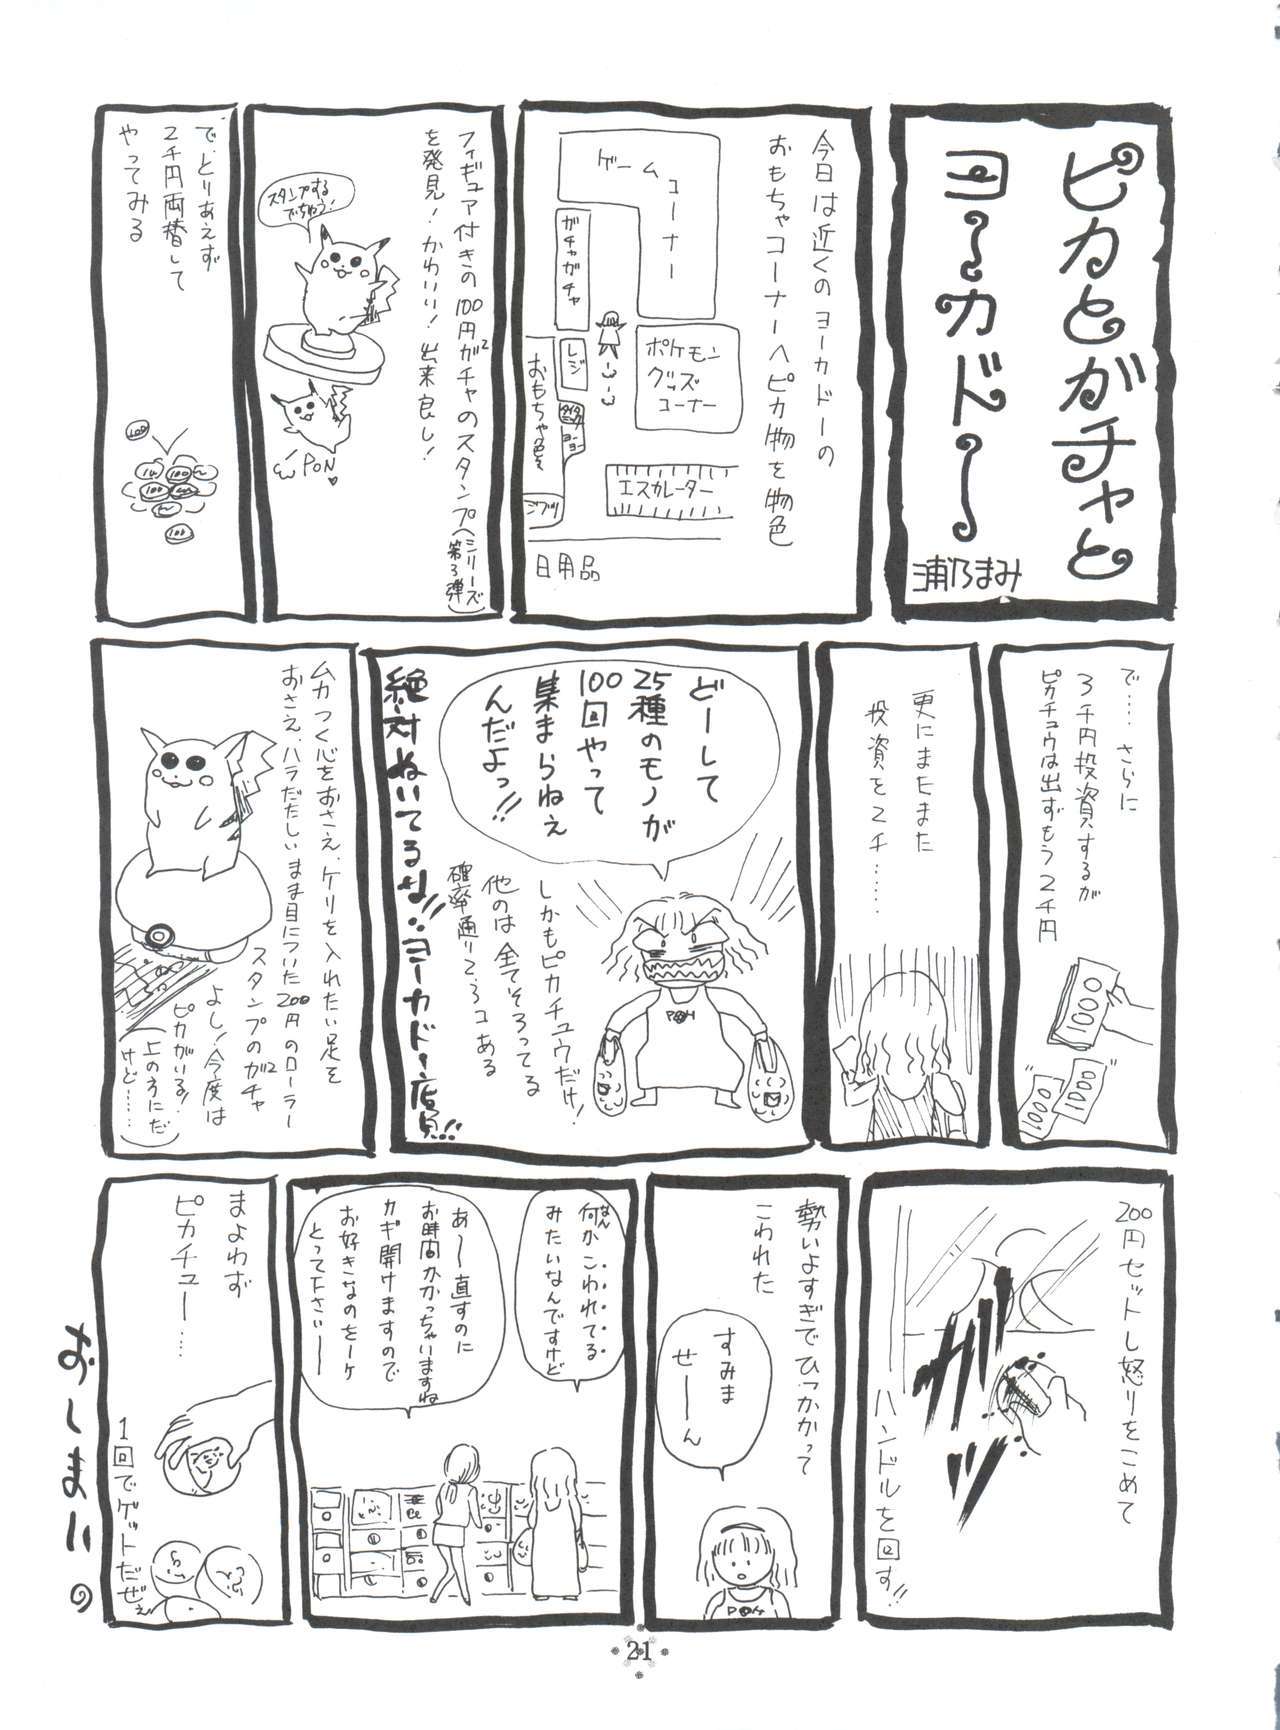 ピカとガチャと
ヨーカドー
浦乃まみ
今日は近くのヨーカドーの
おもちゃコーナーへピカ物を物色
ゲームコーナー
ガチャガチャ
レジ
ポケモン
グッズ
コーナー
おもちゃ色々
ヨーヨー
エスカレーター
ジブリ
日用品
フィギュア付きの100円ガチャ2のスタンプ(シリーズ第3弾)
を発見!かわいい!出来良し!
スタンプする
でちゅう!
PON
で、とりあえず
2千円両替して
やってみる
100
100
100
100
で……さらに
3千円投資するが
ピカチュウは出ずもう2千円
1000
1000
1000
更にまたまた
投資を2千……
どーして
25種のモノが
100回やって
集まらねぇ
んだよっ!!
しかもピカチュウだけ!
他のは全てそろってる
確率通り2、3コある
絶対ぬいてるな!!ヨーカドー店員!!
ムカつく心をおさえ、ケリを入れたい足を
おさえ、ハラだたしいまま目についた200円のローラー
スタンプのガチャ2
よし!今度は
ピカがいる!
(上の方にだ
けど……)
200円セットし怒りをこめて
ハンドルを回す!!
ガガッ
勢いよすぎでひっかかって
こわれた
すみま
せーん
何か(なんか)こわれてる
みたいなんですけど
あ〜直すのに
お時間かかっちゃいますね
カギ開けますので
お好きなのをーケ
とって下さい──
まよわず
ピカチュー……
1回でゲットだぜぇ
おしまい
21